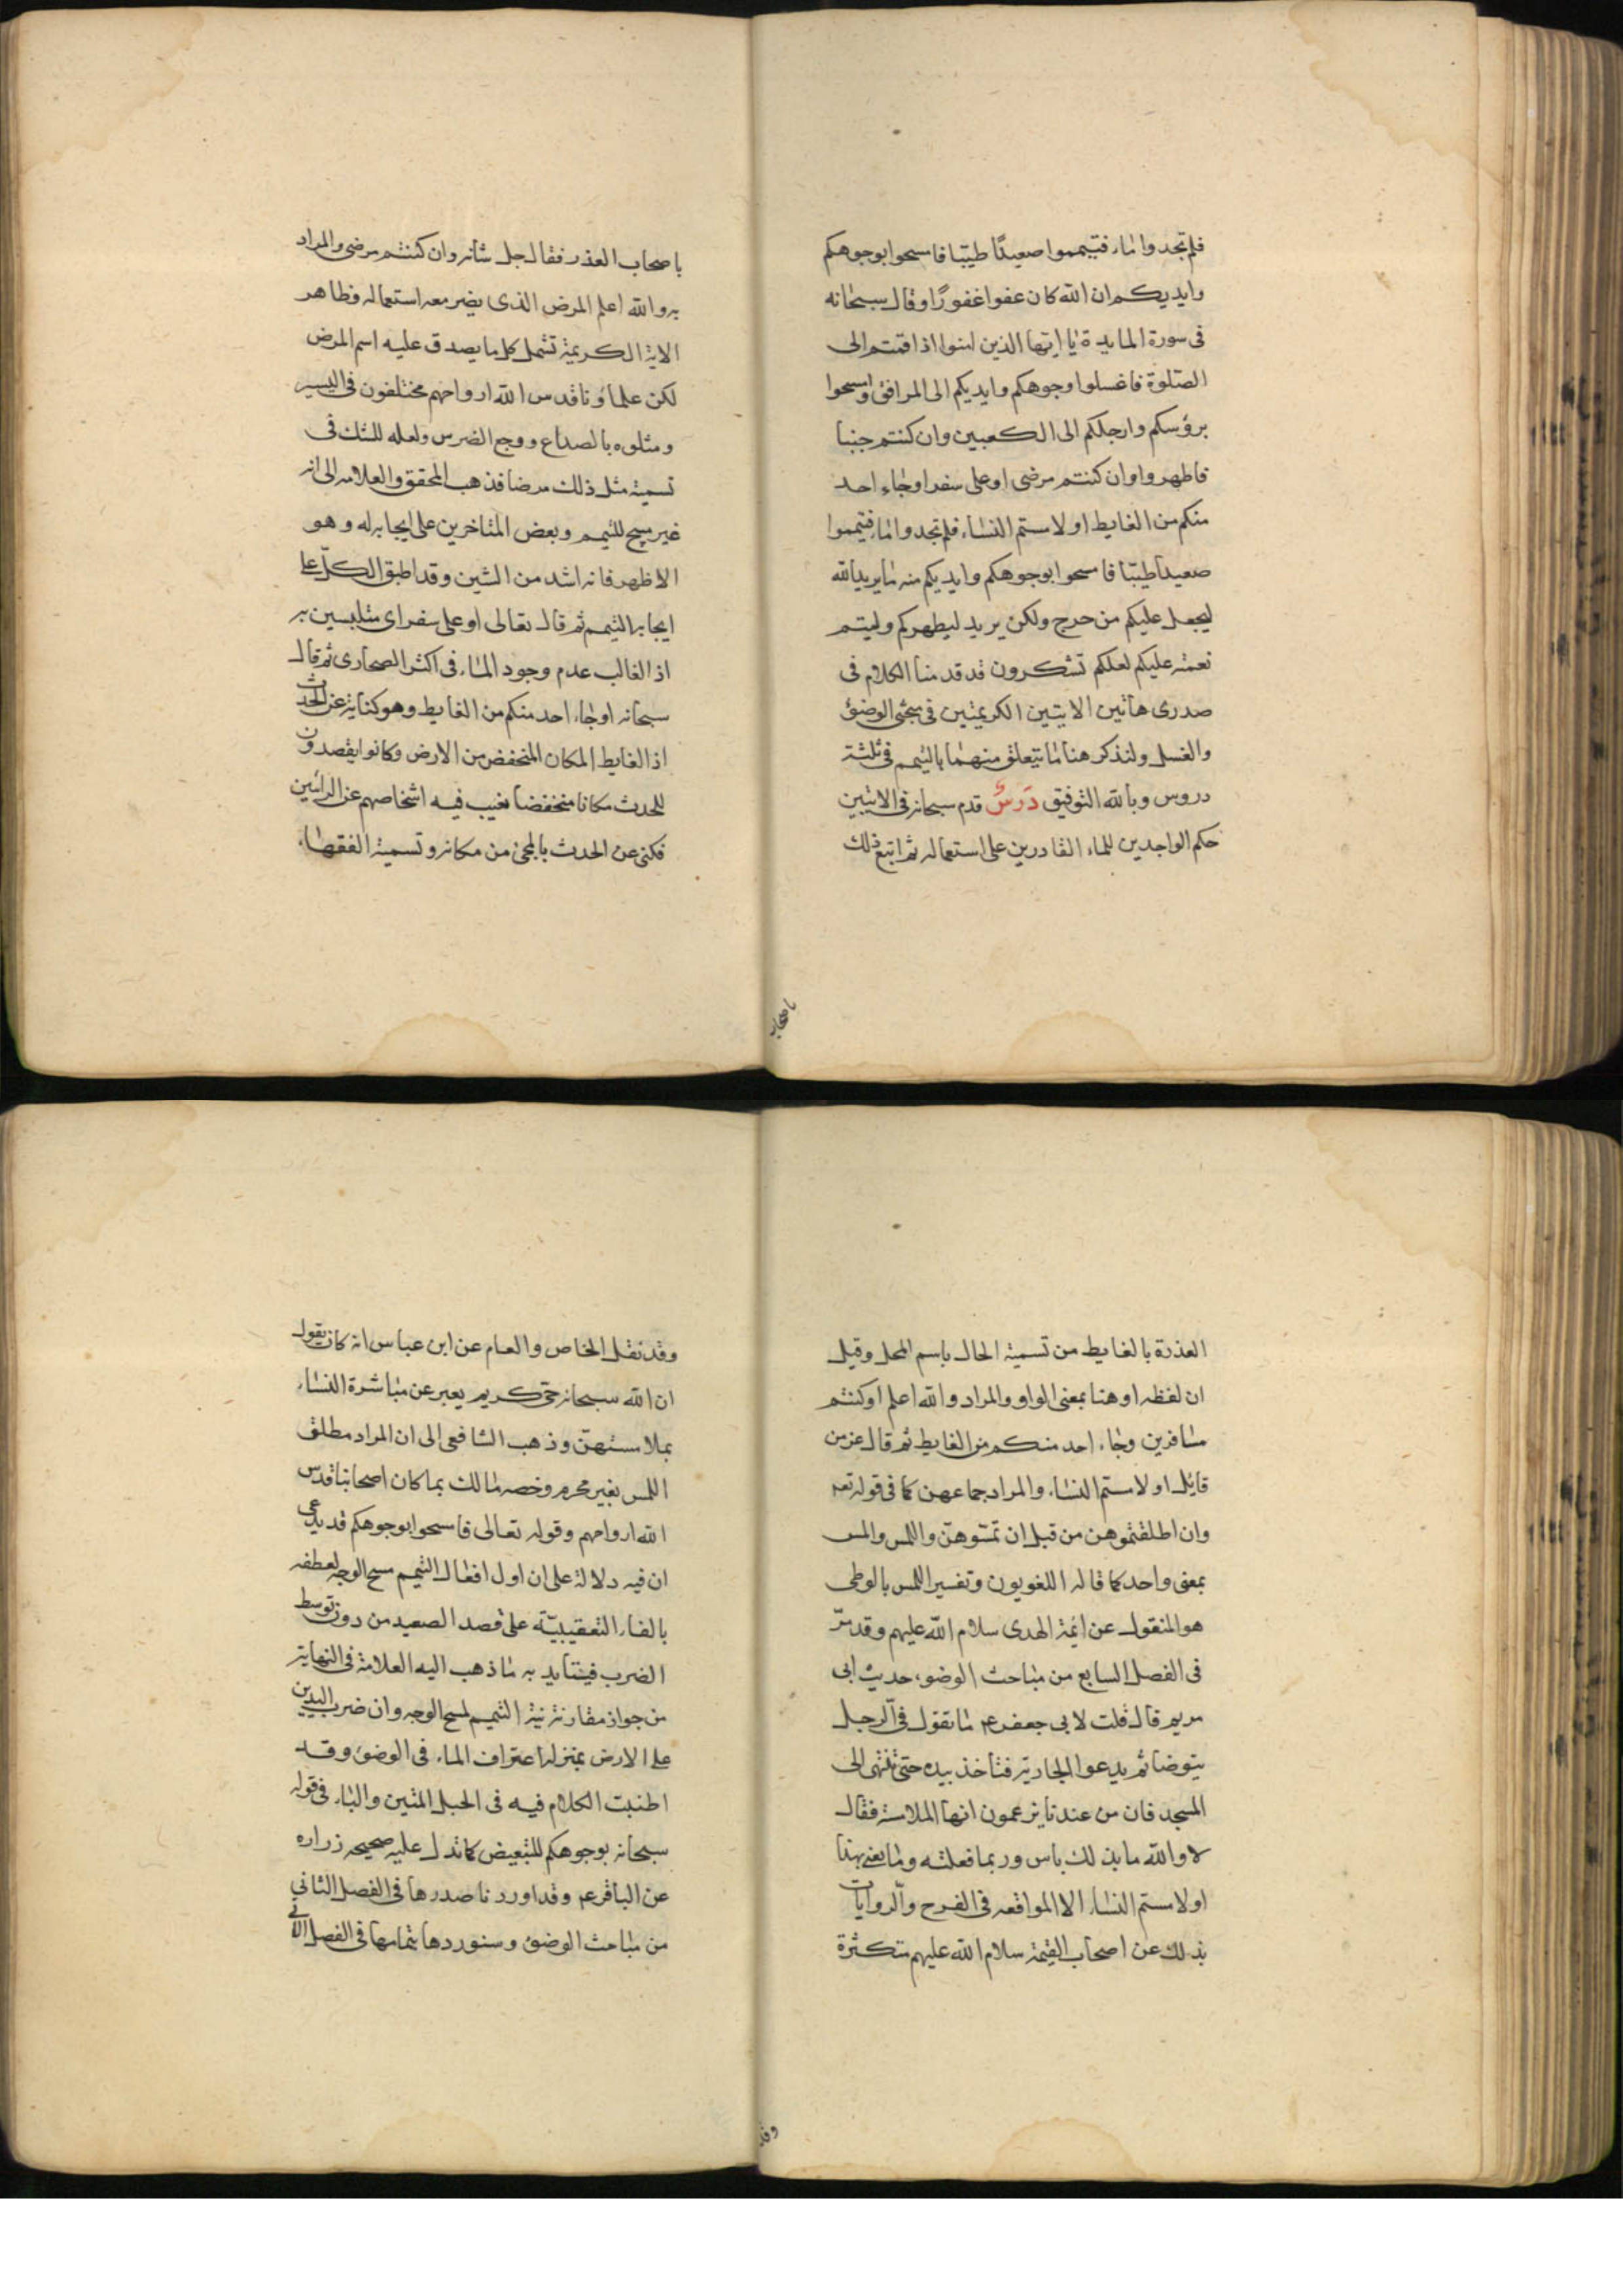 فلم تجدوا ماء فتيمموا صعيدًا طيبا فامسحوا بوجوهكم
وايديكم ان الله كان عفوا غفورًا وقال سبحانه
فى سورة المايدة يا ايها الذين امنوا اذا قمتم الى
الصلوة فاغسلوا وجوهكم وايديكم الى المرافق وامسحوا
برؤسكم وارجلكم الى الكعبين وان كنتم جنبا
فاطهروا وان كنتم مرضى او على سفر او جاء احد
منكم من الغايط او لامستم النساء فلم تجدوا ماء فتيمموا
صعيدا طيبا فامسحوا بوجوهكم وايديكم منه ما يريد الله
ليجعل عليكم من حرج ولكن يريد ليطهركم وليتم
نعمته عليكم لعلكم تشكرون قد قدمنا الكلام فى
صدرى هاتين الايتين الكريمتين فى مبحثى الوضوء
والغسل ولنذكر هنا ما يتعلق منهما بالتيمم فى ثلثة
دروس وبالله التوفيق دَرسٌ قدم سبحانه فى الايتين
حكم الواجدين للماء القادرين على استعماله ثم اتبع ذلك
باصحاب
باصحاب العذر فقال جل شانه وان كنتم مرضى والمراد
به والله اعلم المرض الذى يضر معه استعماله وظاهر
الاية الكريمة تشمل كل ما يصدق عليه اسم المرض
لكن علماؤنا قدس الله ارواحهم مختلفون فى اليسير
ومثلوه بالصداع ووجع الضرس ولعله للشك فى
تسمية مثل ذلك مرضا فذهب المحقق والعلامه الى انه
غير مبيح للتيمم وبعض المتاخرين على ايجابه له وهو
الاظهر فانه اشد من الشين وقد اطبق الكلّ على
ايجابه التيمم ثم قال تعالى او على سفر اى متلبسين به
اذ الغالب عدم وجود الماء فى اكثر الصحارى ثم قال
سبحانه او جاء احد منكم من الغايط وهو كناية عن الحدث
اذ الغايط المكان المنخفض من الارض وكانوا يقصدون
للحدث مكانا منخفضا تغيب فيه اشخاصهم عن الرائين
فكنى عن الحدث بالمجئ من مكانه وتسمية الفقهاء
العذرة بالغايط من تسمية الحال باسم المحل وقيل
ان لفظه او هنا بمعنى الواو والمراد والله اعلم او كنتم
مسافرين وجاء احد منكم من الغايط ثم قال عز من
قايل او لامستم النساء والمراد جماعهن كما فى قوله تعه
وان اطلقتموهن من قبل ان تمسّوهنّ واللمس والمس
بمعنى واحد كما قاله اللغويون وتفسير اللمس بالوطى
هو المنقول عن ائمة الهدى سلام الله عليهم وقد مرّ
فى الفصل السابع من مباحث الوضوء حديث ابى
مريم قال قلت لابى جعفر عم ما تقول فى الرجل
يتوضا ثم يدعوا الجارية فتاخذ بيده حتى تنتهى الى
المسجد فان من عندنا يزعمون انها الملامسة فقال
لا والله ما بذلك باس وربما فعلته وما يعنى بهذا
او لامستم النساء الا المواقعه فى الفرج والّروايات
بذلك عن اصحاب سلام الله عليهم متكثرة
وقد
وقد نقل الخاص والعام عن ابن عباس انه كان يقول
ان الله سبحانه حىّ كريم يعبر عن مباشرة النساء
بملامستهنّ وذهب الشافعى الى ان المراد مطلق
اللمس بغير محرم وخصه مالك بما كان اصحابنا قدس
الله ارواحهم وقوله تعالى فامسحوا بوجوهكم قد يدعى
ان فيه دلالة على ان اول افعال التيمم مسح الوجه لعطفه
بالفاء التعقيبيّة على قصد الصعيد من دون توسط
الضرب فيتايد به ما ذهب اليه العلامة فى النهاية
من جواز مقارنة نية التيمم لمسح الوجه وان ضرب اليدين
على الارض بمنزلة اغتراف الماء فى الوضوء وقد
اطنبت الكلام فيه فى الحبل المتين والباء فى قوله
سبحانه بوجوهكم للتبعيض كما تدل عليه صحيحه زراره
عن الباقر عم وقد اوردنا صدرها فى الفصل الثانى
من مباحث الوضوء وسنوردها بتمامها فى الفصل الآتى